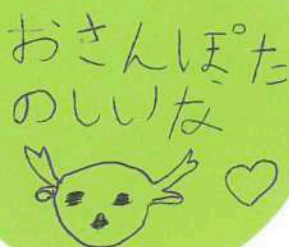 おさんぽた
のしいな